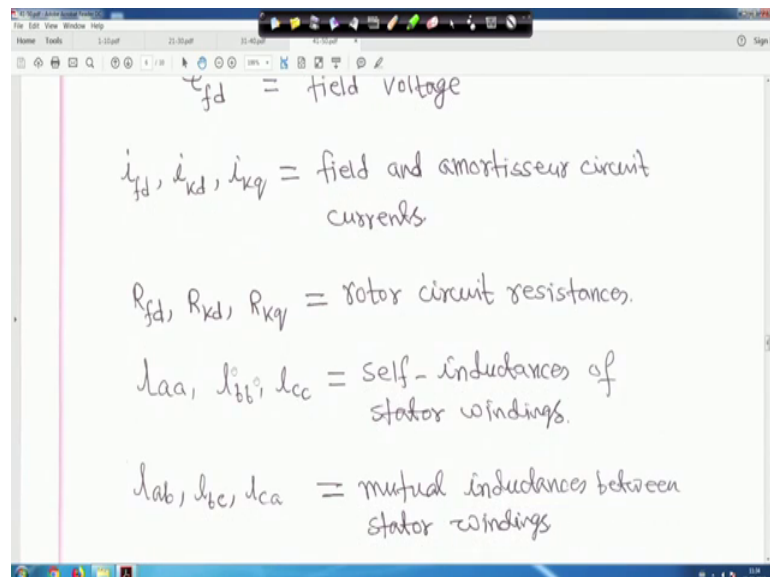 41-50.pdf - Adobe Acrobat Reader DC
File Edit View Window Help
Home Tools 1-10.pdf 21-30.pdf 31-40.pdf 41-50.pdf × Sign
e_fd = field voltage
i_fd, i_kd, i_kq = field and amortisseur circuit
currents.
R_fd, R_kd, R_kq = rotor circuit resistances.
l_aa, l_bb, l_cc = self-inductances of
stator windings.
l_ab, l_bc, l_ca = mutual inductances between
stator windings